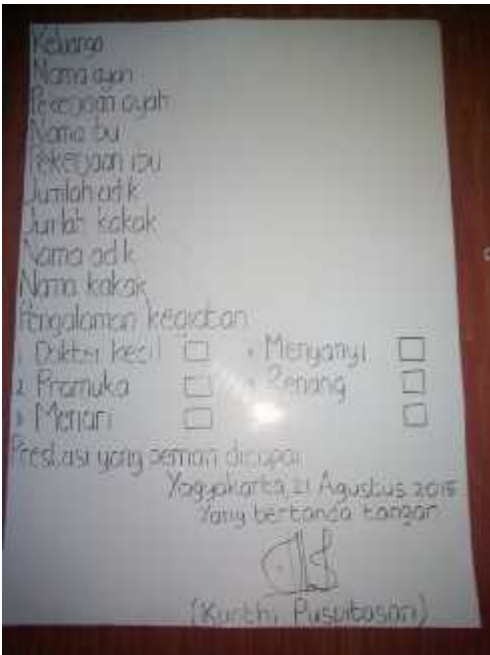 Keluarga
Nama ayah
Pekerjaan ayah
Nama ibu
Pekerjaan ibu
Jumlah adik
Jumlah kakak
Nama adik
Nama kakak
Pengalaman kegiatan
1. Dokter kecil Menyanyi
2. Pramuka Renang
3. Menari
Prestasi yang pernah dicapai
Yogyakarta, 21 Agustus 2015
Yang bertanda tangan
(Kunthi Puspitasari)